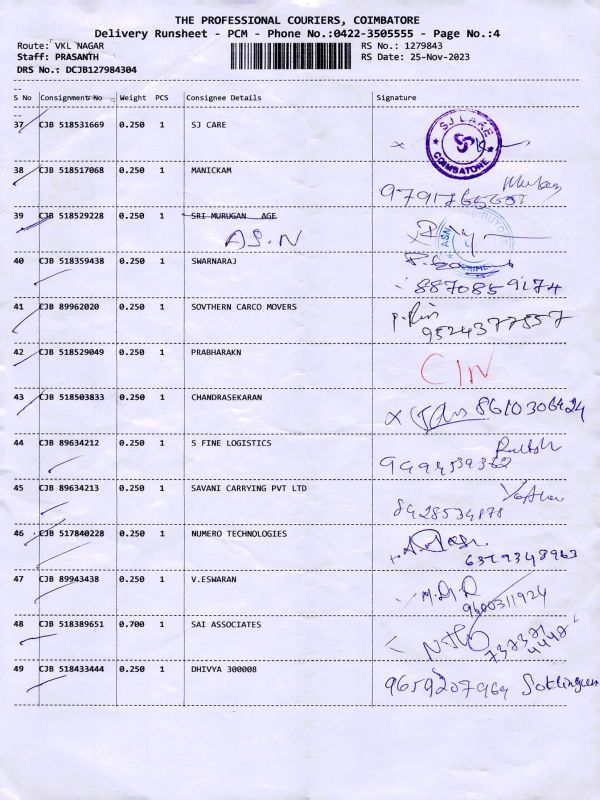 THE PROFESSIONAL COURIERS, COIMBATORE
Delivery Runsheet - PCM - Phone No.:0422-3505555 - Page No.:4
Route: VKL NAGAR RS No.: 1279843
Staff: PRASANTH RS Date: 25-Nov-2023
DRS No.: DCJB127984304
S No Consignments No Weight PCS Consignee Details Signature
37 CJB 518531669 0.250 1 SJ CARE
SJ CARE
COIMBATORE
38 CJB 518517068 0.250 1 MANICKAM
39 CJB 518529228 0.250 1 SRI MURUGAN AGE
AS.N
40 CJB 518359438 0.250 1 SWARNARAJ
8870859174
41 CJB 89962020 0.250 1 SOVTHERN CARCO MOVERS
9524377557
42 CJB 518529049 0.250 1 PRABHARAKN
43 CJB 518503833 0.250 1 CHANDRASEKARAN
8610306424
44 CJB 89634212 0.250 1 S FINE LOGISTICS
45 CJB 89634213 0.250 1 SAVANI CARRYING PVT LTD
8428534878
46 CJB 517840228 0.250 1 NUMERO TECHNOLOGIES
6379348963
47 CJB 89943438 0.250 1 V.ESWARAN
9600311924
48 CJB 518389651 0.700 1 SAI ASSOCIATES
49 CJB 518433444 0.250 1 DHIVYA 300008
9659207969